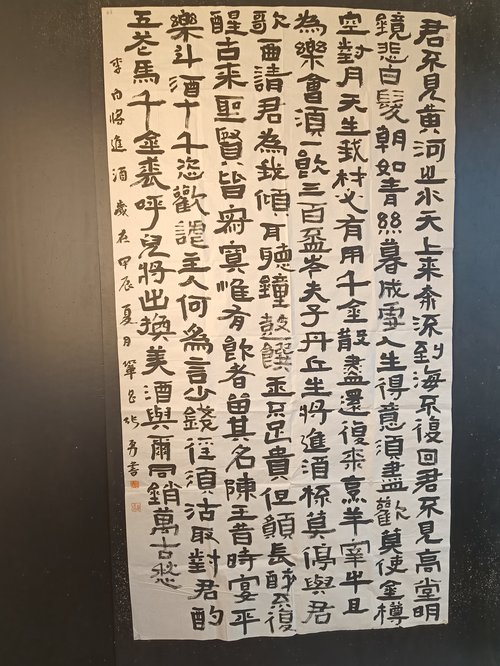 君不見黃河之水天上來奔流到海不復回君不見高堂明
鏡悲白髮朝如青絲暮成雪人生得意須盡歡莫使金樽
空對月天生我材必有用千金散盡還復來烹羊宰牛且
為樂會須一飲三百盃岑夫子丹丘生將進酒桮莫停與君
歌一曲請君為我傾耳聽鐘鼓饌玉不足貴但願長醉不復
醒古來聖賢皆寂寞惟有飲者留其名陳王昔時宴平
樂斗酒十千恣歡謔主人何為言少錢徑須沽取對君酌
五花馬千金裘呼兒將出換美酒與爾同銷萬古愁
李白將進酒歲在甲辰夏月勇書